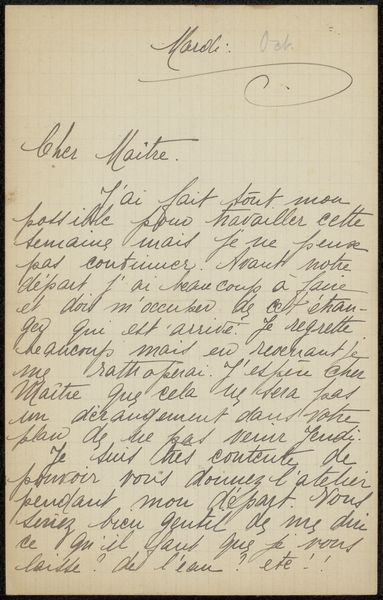 Mardi. Oct.
Cher Maître.
J'ai fait tout mon
possible pour travailler cette
semaine mais je ne peux
pas continuer. Avant notre
départ j'ai beaucoup à faire
et dois m'occuper de cet étran-
ger qui est arrivé. Je regrette
beaucoup mais en revenant je
me rattraperai. J'espère cher
Maître que cela ne sera pas
un dérangement dans votre
plan de ne pas venir Jeudi.
Je suis très contente de
pouvoir vous donner l'atelier
pendant mon départ. Vous
serez bien gentil de me dir
ce qu'il faut que je vous
laisse? de l'eau? etc!!